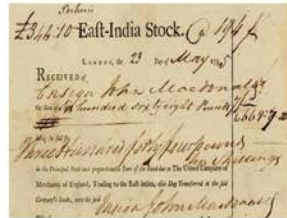 £344:10 East-India Stock. @ 194
LONDON, the 23 Day of May 1795
RECEIVED of
Ensign John Macdonald
the Sum of Six hundred sixty eight Pounds
being for
Three Hundred forty four pounds
ten Shillings
in the Principal Stock and proportional Part of the Fund due in The United Company of
Merchants of England, Trading to the East-Indies, this Day Transferred in the said
Company's Books, unto the said
Ensign John Macdonald